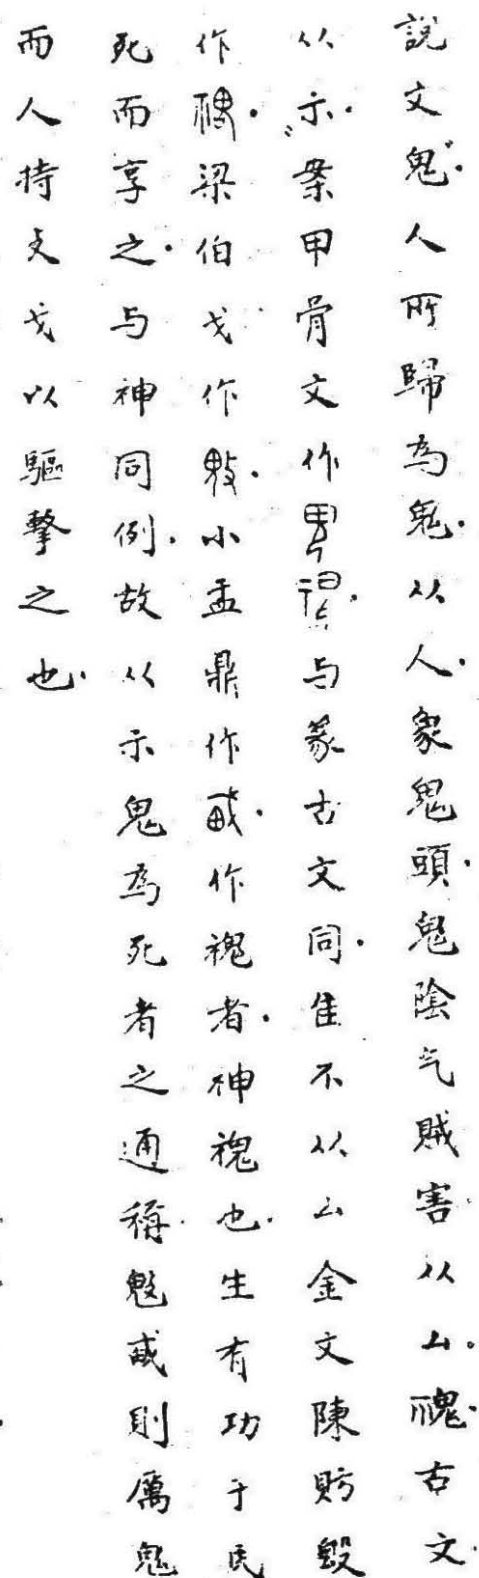 說文鬼人所歸為鬼.从人.象鬼頭.鬼陰气賊害从厶。䰠古文.
从示.案甲骨文作.与篆古文同.隹不从厶金文陳肪𣪘
作.梁伯戈作.小盂鼎作.作䰠者.神䰠也.生有功于民
死而享之.与神同例.故从示鬼為死者之通稱.則厲鬼
而人持攴戈以驅擊之也.